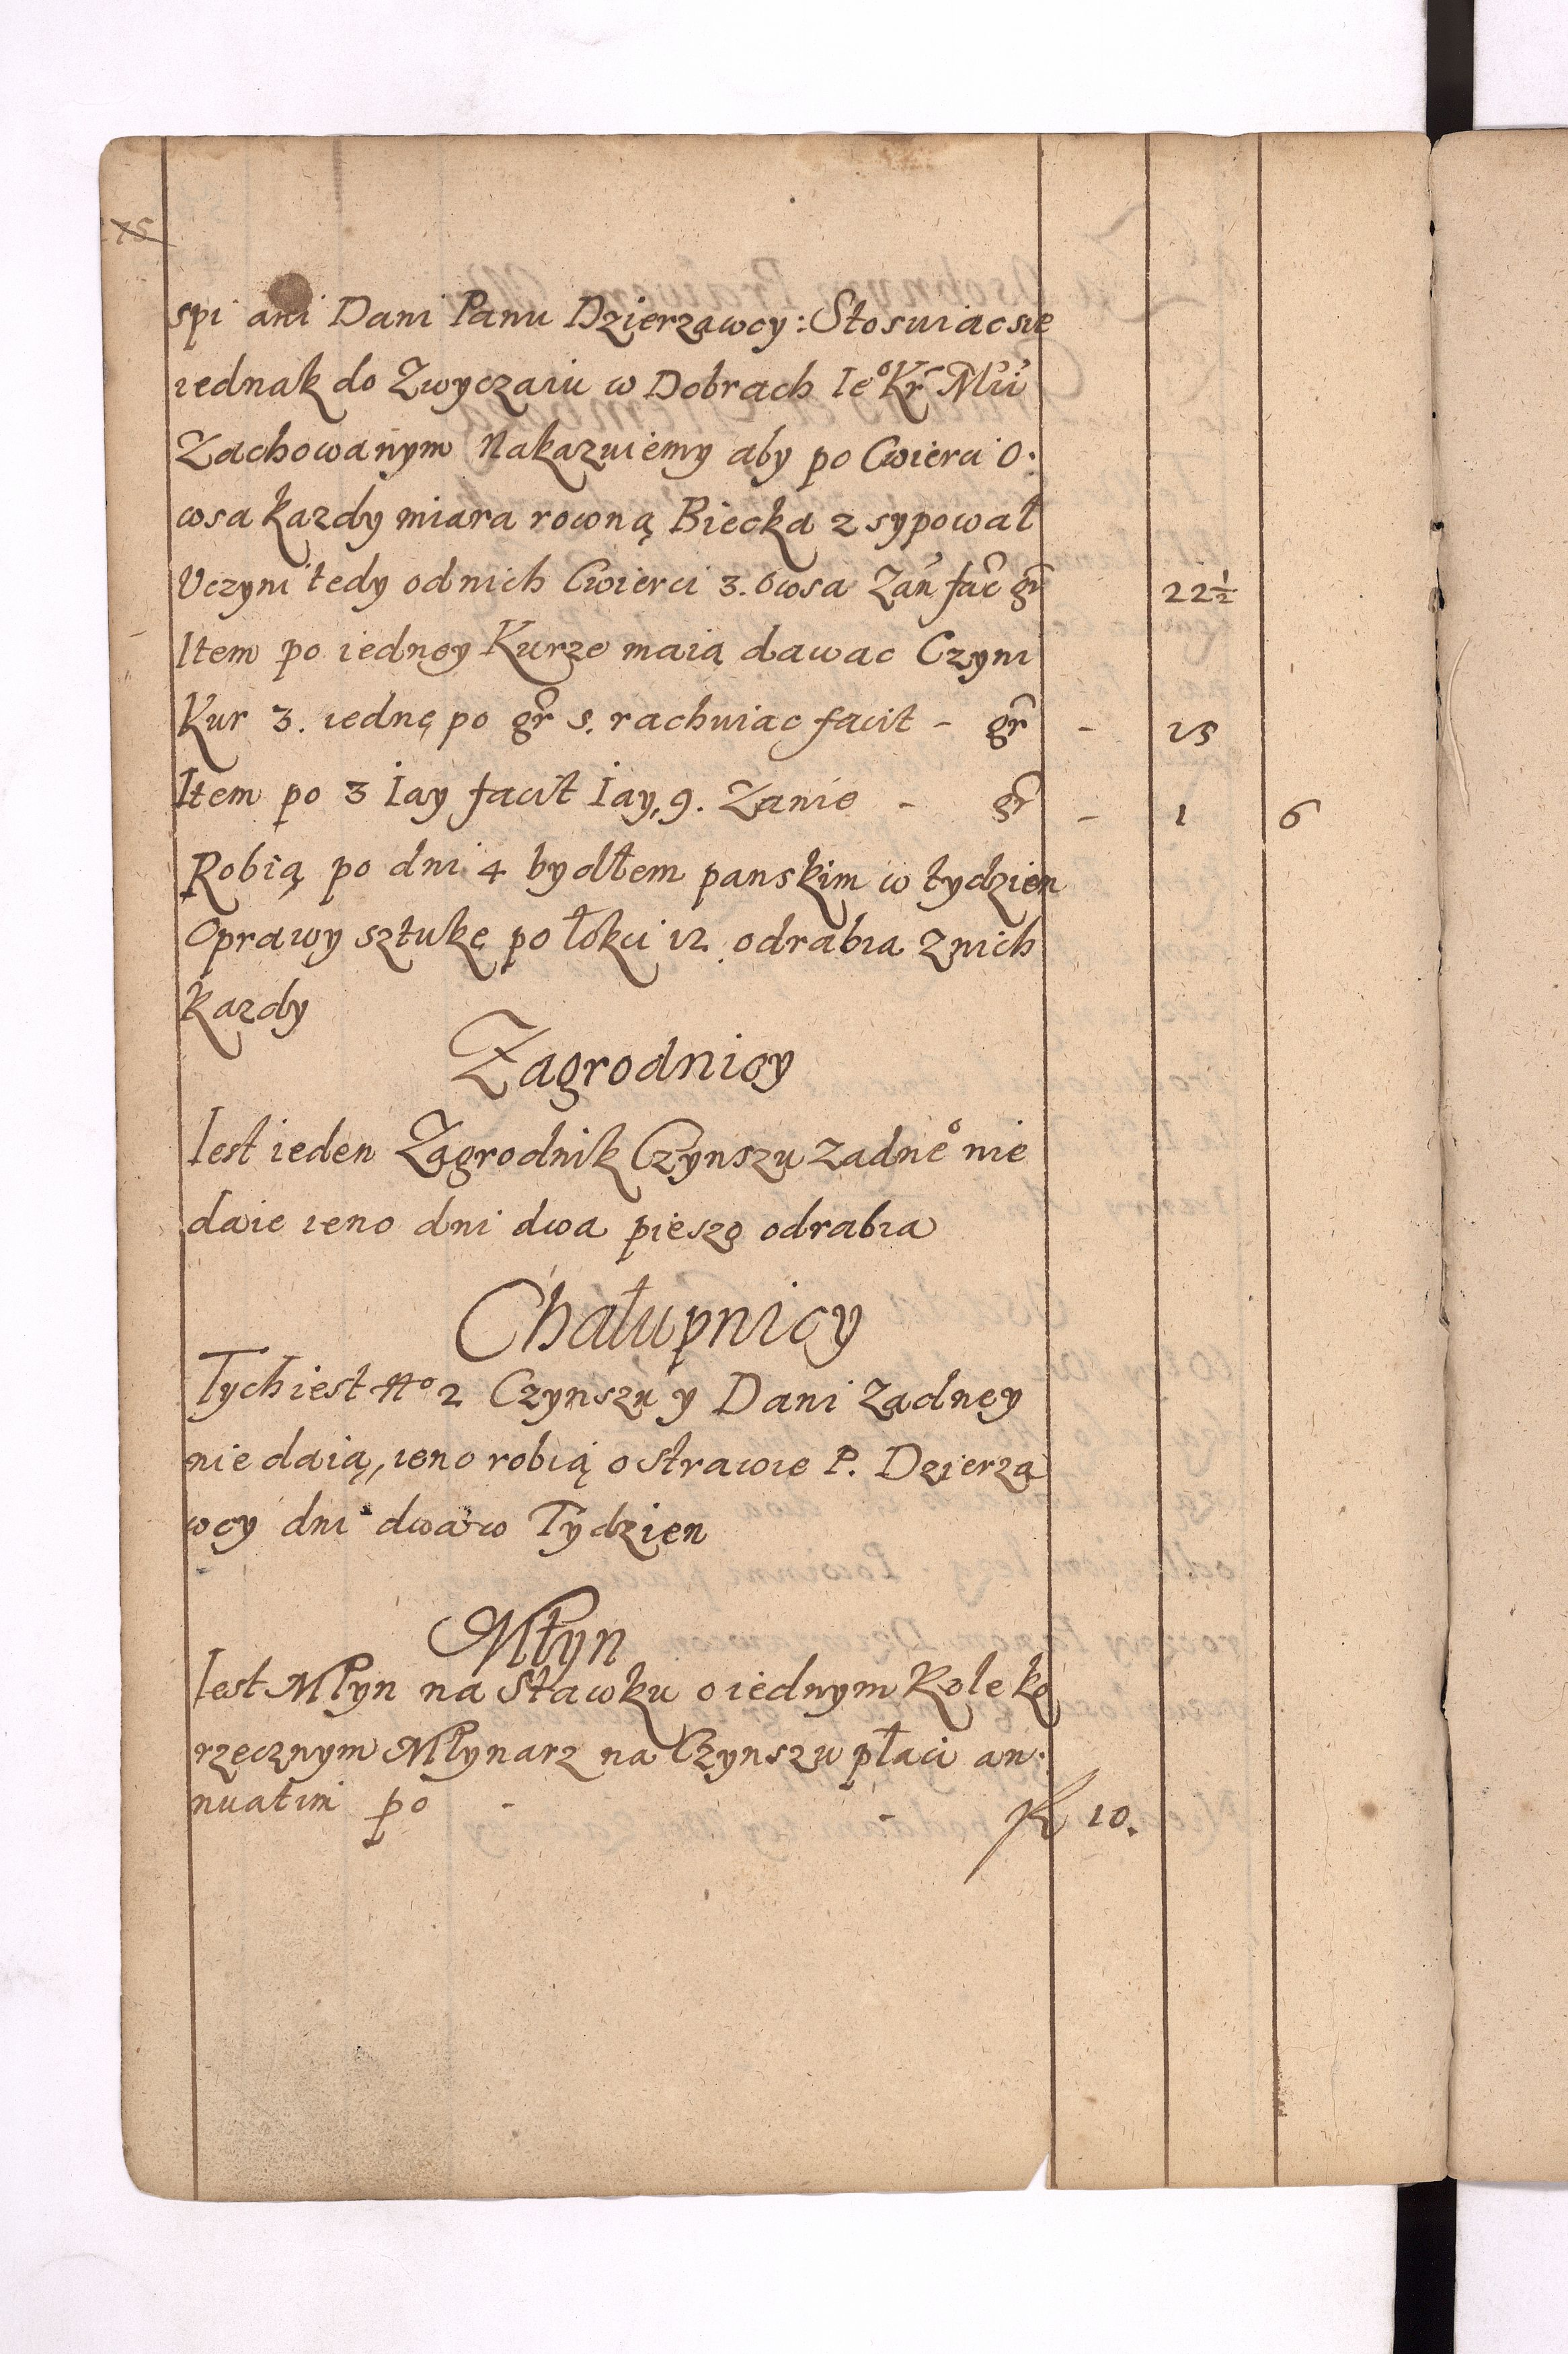 75
spi ani Dani Panu Dzierzawcy: Stosuiac sie
iednak do Zwyczaiu w Dobrach Ieº Kr Mci
Zachowanym Nakazuiemy aby po Cwierci O:
wsa kazdy miara rowną Biecka zsypował
Uczyni tedy od nich Cwierci 3. Owsa Zań fac gr 22 ½
Item po iedney Kurze maią dawac Czyni
Kur 3. iednę po gr 5. rachuiac facit - gr - 15
Item po 3 Iay facit Iay, 9. Zanie - gr - 1 6
Robią po dni 4 bydłem panskim w tydzien
Oprawy sztukę po łokci 12 odrabia z nich
kazdy
Zagrodnicy
Iest ieden Zagrodnik Czynszu zadneº nie
daie ieno dni dwa pieszo odrabia
Chałupnicy
Tych iest Nº 2 Czynszu y Dani zadney
nie daią, ieno robią o strawie P. Dzierza
wcy dni dwa w Tydzien
Młyn
Iest Młyn na Stawku o iednym Kole ko
rzecznym Młynarz na Czynszu płaci an:
nuatim po - - fl 10.